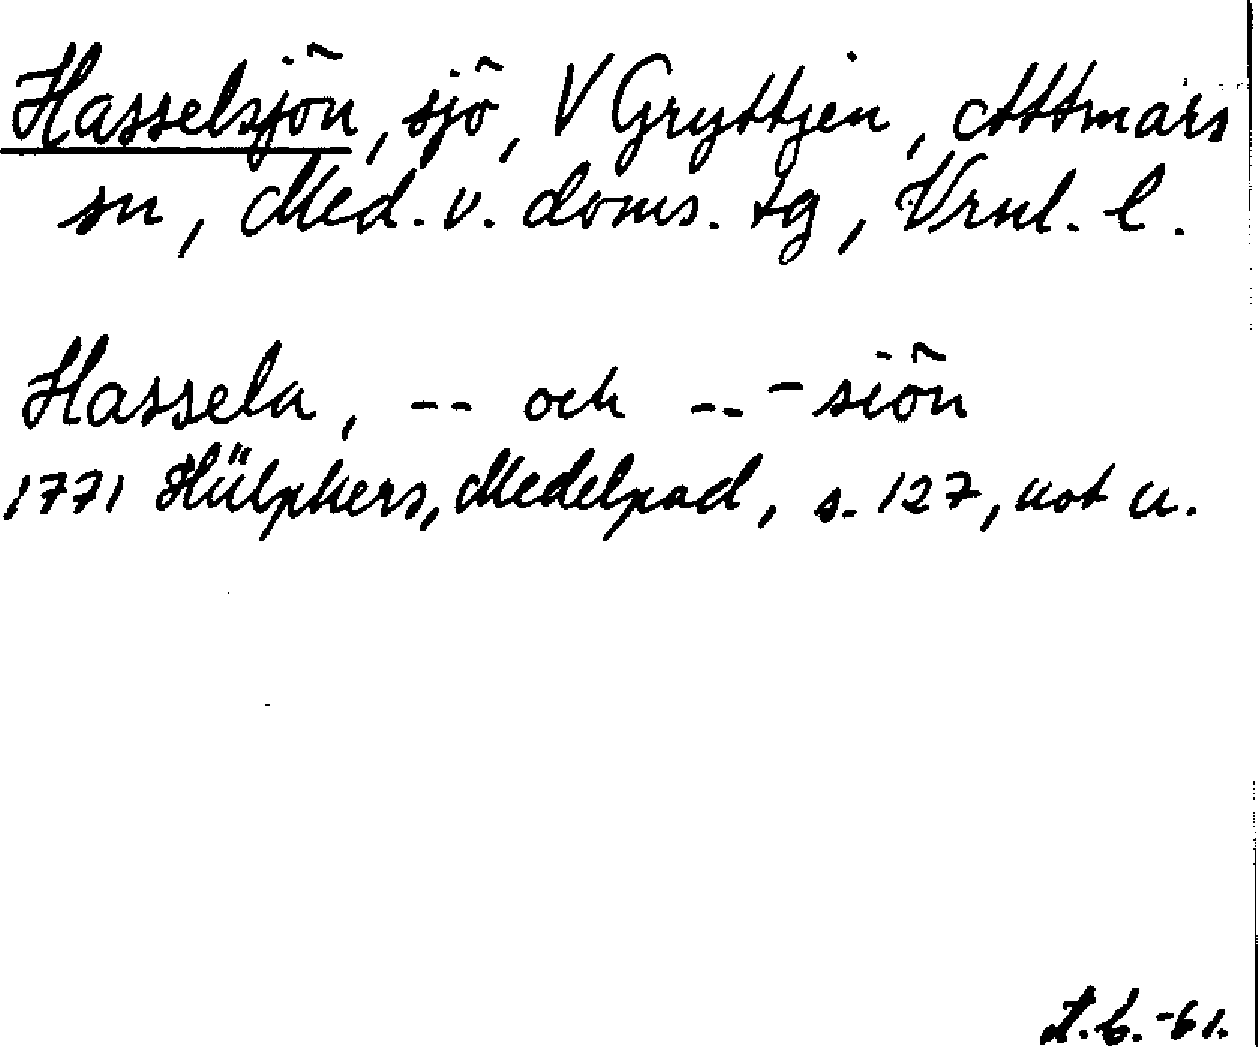 Hasselsjön, sjö, V Gryttjen, Attmars
sn, Med. v. doms. tg, Vrnl. l.
Hassela, -- och -- -siön
1771 Hülphers, Medelpad, s. 127, not u.
-61.